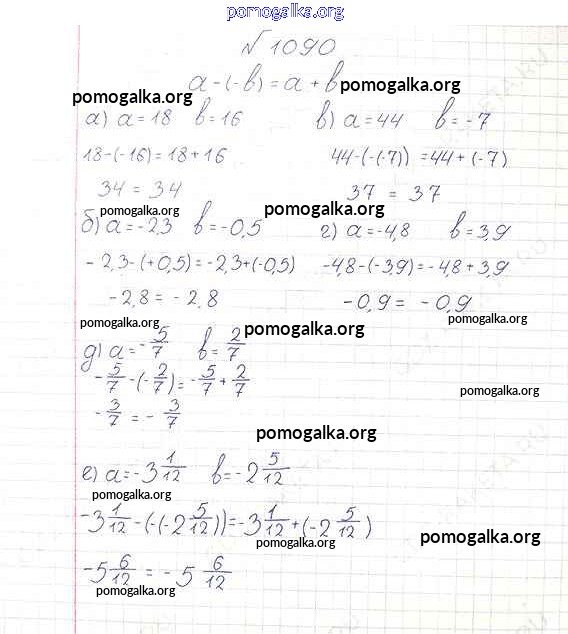 pomogalka.org
№ 1090
a-(-b)=a+b
pomogalka.org pomogalka.org
а) a=18 b=16 в) a=44 b=-7
18-(-16)=18+16 44-(-(-7))=44+(-7)
34 = 34 37 = 37
pomogalka.org pomogalka.org
б) a=-2,3 b=-0,5 г) a=-4,8 b=3,9
-2,3-(+0,5)=-2,3+(-0,5) -4,8-(-3,9)=-4,8+3,9
-2,8 = -2,8 -0,9 = -0,9
pomogalka.org pomogalka.org pomogalka.org
д) a=-5/7 b=2/7
-5/7-(-2/7)=-5/7+2/7
pomogalka.org
-3/7 = -3/7
pomogalka.org
е) a=-3 1/12 b=-2 5/12
pomogalka.org
-3 1/12-(-(-2 5/12))=-3 1/12+(-2 5/12)
pomogalka.org pomogalka.org
-5 6/12 = -5 6/12
pomogalka.org